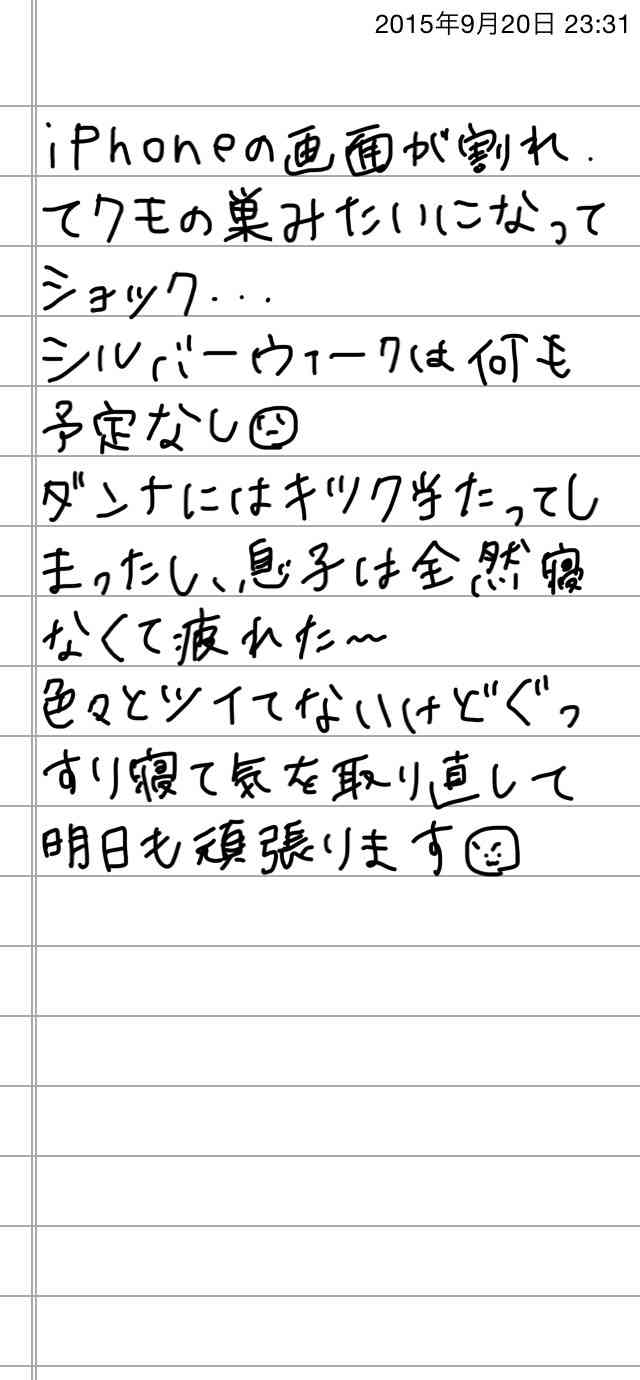 2015年9月20日 23:31
iPhoneの画面が割れ.
てクモの巣みたいになって
ショック...
シルバーウィークは何も
予定なし
ダンナにはキツク当たってし
まったし、息子は全然寝
なくて疲れた〜
色々とツイてないけどぐっ
すり寝て気を取り直して
明日も頑張ります